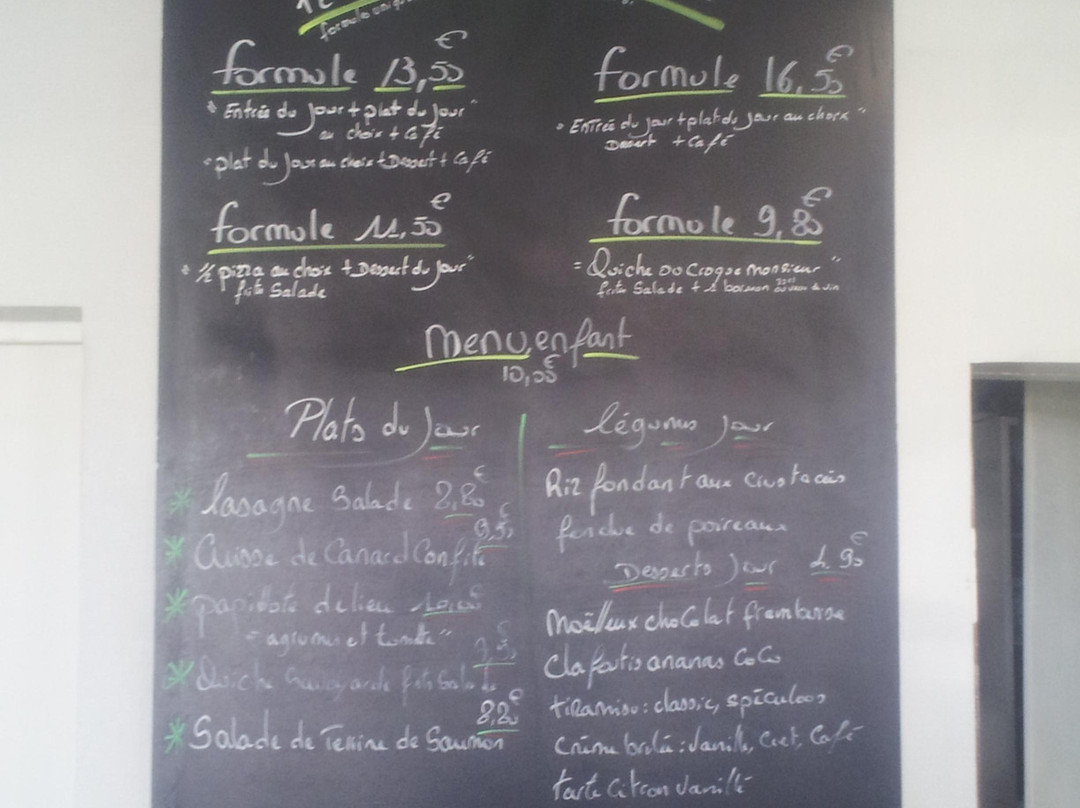 formule unique
formule 13,50 €
" Entrée du jour + plat du jour "
au choix + Café
" plat du Jour au choix + Dessert + Café
formule 16,50 €
" Entrée du jour + plat du jour au choix "
Dessert + Café
formule 11,50 €
" ½ pizza au choix + Dessert du Jour "
frite Salade
formule 9,80 €
" Quiche ou Croque monsieur "
frite Salade + 1 boisson
Menu enfant
10,00 €
Plats du Jour
* lasagne Salade 8,80 €
9,50 €
* Cuisse de Canard Confite
* papillote de lieu 10,00 €
" agrumes et tomate "
* Quiche Savoyarde
8,80 €
* Salade de Terrine de Saumon
légumes Jour
Riz fondant aux crustacés
fondue de poireaux
Desserts Jour 4.90 €
Moëlleux chocolat framboise
Clafoutis ananas CoCo
tiramisu : classic, spéculoos
Crème brulée : Vanille, Café
tarte Citron Vanille